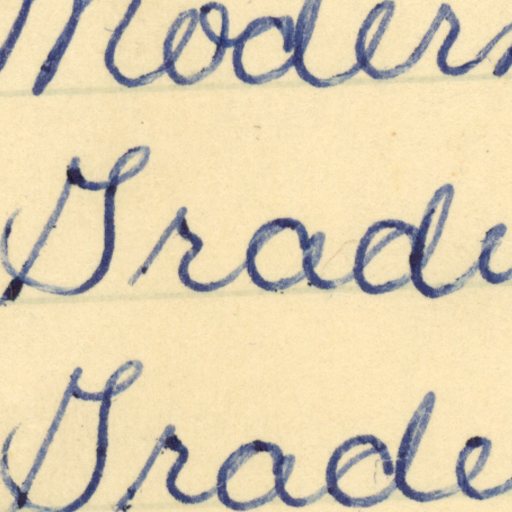 Modern
Gradu
Grade